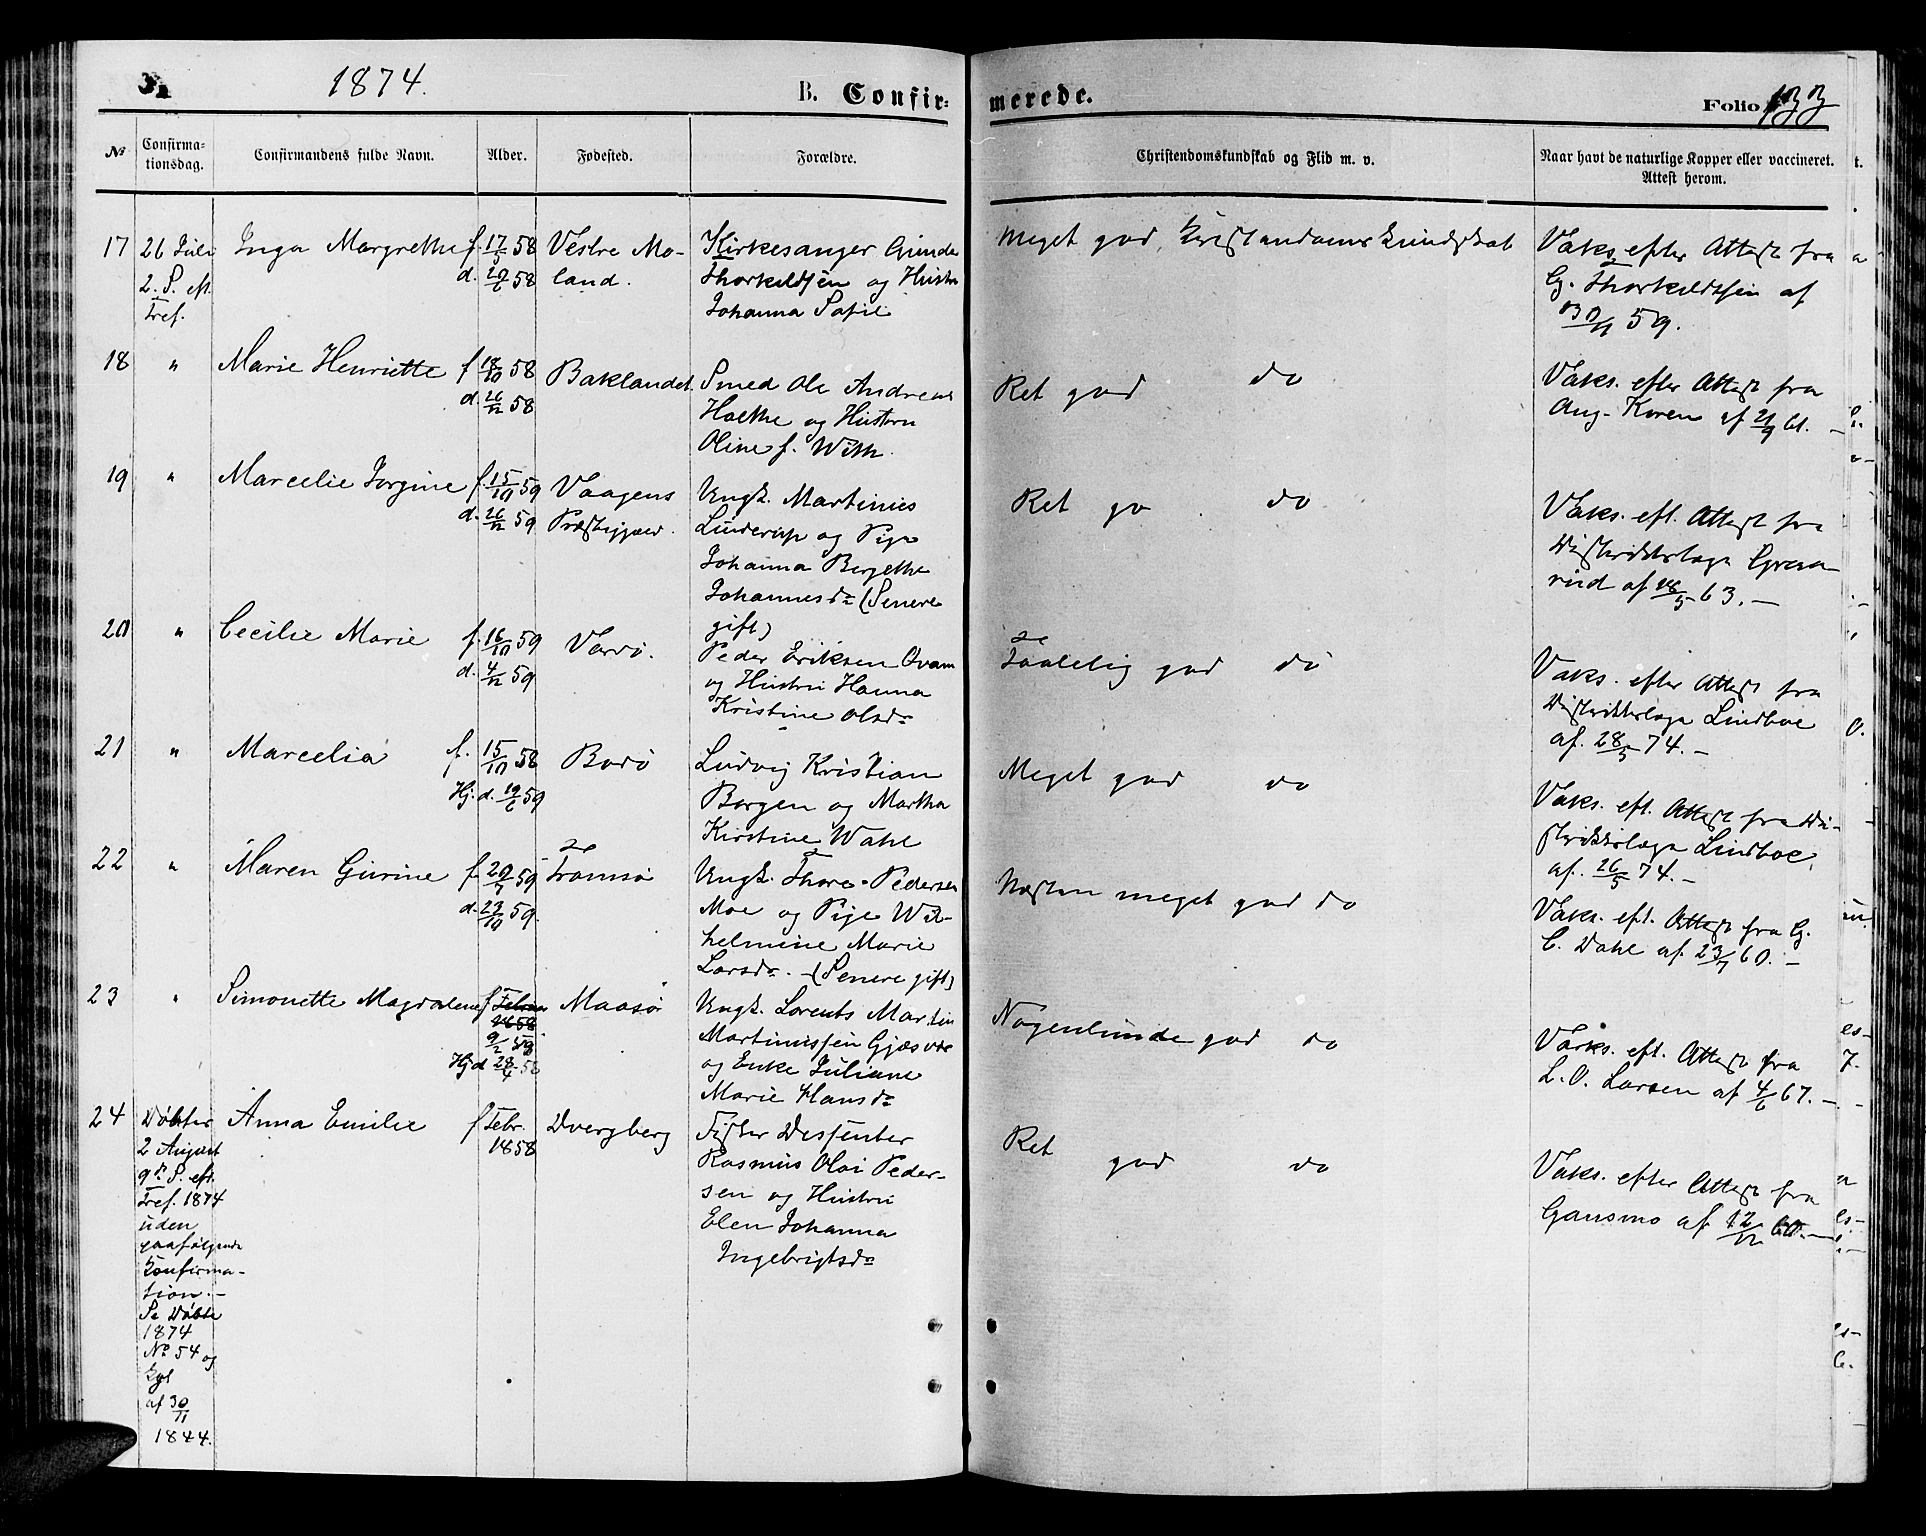 1874.
B. Confir-
merede.
Folio 133
No
Confirma-
tionsdag.
Confirmandens fulde Navn.
Alder.
Fødested.
Forældre.
Christendomskundskab og Flid m. v.
Naar havt de naturlige Kopper eller vaccineret.
Attest herom.
17
26 Juli
2. S. eft.
Tref.
Inga Margrethe
f. 17/5 58
d. 20/6 58
Vestre Mo-
land.
Kirkesanger Gunde
Thorkildsen og Hustru
Johanna Sofie
Meget god Kristendomskundskab
Vaks. efter Attest fra
G. Thorkildsen af
30/11 59.
18
"
Marie Henriette
f 18/10 58
d. 26/12 58
Baklandet
Smed Ole Andreas
Holthe og Hustru
Oline f. With
Ret god do
Vaks. efter Attest fra
Aug. Koren af 21/9 61.
19
"
Marcelie Jorgine
f. 15/10 59
d. 26/12 59
Vaagens
Præstegjæld.
Ungk. Martinus
Linderup og Pige
Johanna Bergethe
Johannesda (Senere
gift)
Ret go do
Vaks. eft. Attest fra
Distriktslæge Graa-
rud af 18/5 63. —
20
"
Cecilie Marie
f. 16/10 59
d. 4/12 59
Vardø.
Peder Eriksen Qvam
og Hustru Hanna
Kristine Olsda
Taalelig god do
Vaks. efter Attest fra
Distriktslæge Lindboe
af. 28/5 74. —
21
"
Marcelia
f. 15/10 58
Hj. d. 19/6 59
Bodø
Ludvig Kristian
Borgen og Martha
Kirstine Wahl
Meget god do
Vaks. eft. Attest fra Di-
striktslæge Lindboe,
af. 26/5 74. —
22
"
Maren Gurine
f. 20/7 59
d. 23/10 59.
Tromsø
Ungk. Thore Pedersen
Moe og Pige Wil-
helmine Marie
Larsda. — (Senere gift)
Næsten meget god do
Vaks. eft. Attest fra G.
C. Dahl af 23/7 60. —
23
"
Simonette Magdalene
f Februar
1858
9/2 58
Hj d 28/4 58
Maasø
Ungk. Lorents Martin
Martinussen Gjæsvær
og Enke Juliane
Marie Hansda
Nogenlunde god do
Vaks. eft. Attest fra
L. O. Larsen af 4/6 67. —
24
Døbter
2 August
9de S. eft.
Tref. 1874
uden
paafølgende
Konfirma-
tion. —
Se Døbte
1874
No 54 og
Kgl
af 30/11
1844.
Anna Emilie
f Febr.
1858
Dvergberg
Fisker Dissenter
Rasmus Olai Peder-
sen og Hustru
Elen Johanna
Ingebrigtsda
Ret god do
Vaks. efter Attest fra
Gansmo af 12/12 60. —